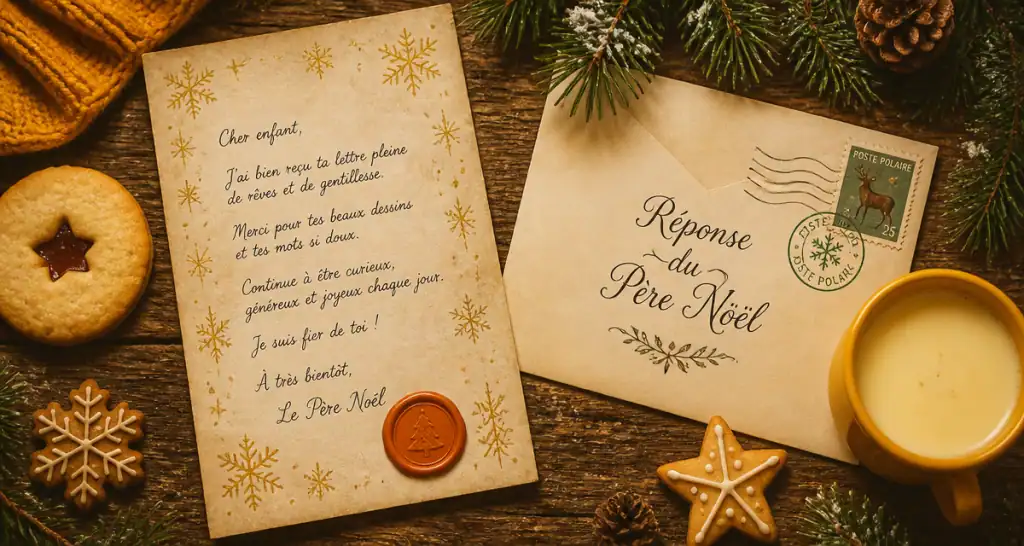 Cher enfant,
J'ai bien reçu ta lettre pleine
de rêves et de gentillesse.
Merci pour tes beaux dessins
et tes mots si doux.
Continue à être curieux,
généreux et joyeux chaque jour.
Je suis fier de toi !
À très bientôt,
Le Père Noël
Réponse
du
Père Nöël
POSTE POLAIRE
25
POSTE POLAIRE